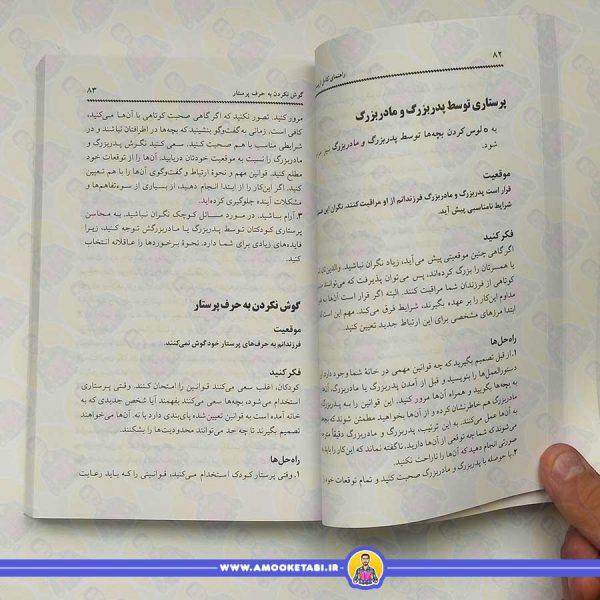 ۸۲
راهنمای کامل
پرستاری توسط پدربزرگ و مادربزرگ
به ← لوس کردن بچه‌ها توسط پدربزرگ و مادربزرگ نیز
شود.
موقعیت
قرار است پدربزرگ و مادربزرگ فرزندانم از او مراقبت کنند. نگران این
شرایط نامناسبی پیش آید.
فکر کنید
اگر گاهی چنین موقعیتی پیش می‌آید، زیاد نگران نباشید. والدین‌تان
یا همسرتان را بزرگ کرده‌اند، پس می‌توان پذیرفت که می‌توانند
کوتاهی از فرزندان شما مراقبت کنند. البته اگر قرار است آن‌ها به
مداوم این‌کار را بر عهده بگیرند، شرایط فرق می‌کند. مهم این است
ابتدا مرزهای مشخصی برای این ارتباط جدید تعیین کنید.
راه‌حل‌ها
۱. قبل از تصمیم بگیرید که چه قوانین مهمی در خانهٔ شما وجود دارد
دستورالعمل‌ها را بنویسید و قبل از آمدن پدربزرگ یا مادربزرگ، آن‌ها
به بچه‌ها بگویید و همراه آن‌ها مرور کنید. این قوانین را به پدربزرگ
مادربزرگ هم خاطرنشان کرده و از آن‌ها بخواهید مطمئن شوند که بچه‌ها
به آن‌ها عمل می‌کنند. به این ترتیب، پدربزرگ و مادربزرگ دقیقاً متوجه
می‌شوند که شما چه توقعی از آن‌ها دارید. ناگفته نماند که این‌کار را باید
صورتی انجام دهید که آن‌ها را ناراحت نکنید.
۲. با حوصله با پدربزرگ و مادربزرگ صحبت کنید و تمام توقعات خود
گوش نکردن به حرف پرستار
۸۳
مرور کنید. تصور نکنید که اگر گاهی صحبت کوتاهی با آن‌ها می‌کنید،
کافی است. زمانی به گفت‌وگو بنشینید که بچه‌ها در اطرافتان نباشند و در
شرایطی مناسب با هم صحبت کنید. سعی کنید نگرش پدربزرگ و
مادربزرگ را نسبت به موقعیت خودتان دریابید. آن‌ها را از توقعات خود
مطلع کنید. قوانین مهم و نحوهٔ ارتباط و گفت‌وگوی آن‌ها را با هم تعیین
کنید. اگر این‌کار را از ابتدا انجام دهید، از بسیاری از سوءتفاهم‌ها و
مشکلات آینده جلوگیری کرده‌اید.
۳. آرام باشید. در مورد مسائل کوچک نگران نباشید. به محاسن
پرستاری کودکتان توسط پدربزرگ یا مادربزرگش توجه کنید، زیرا
فایده‌های زیادی برای شما دارد. نحوهٔ برخوردها را عاقلانه انتخاب
کنید.
گوش نکردن به حرف پرستار
موقعیت
فرزندانم به حرف‌های پرستار خود گوش نمی‌کنند.
فکر کنید
کودکان، اغلب سعی می‌کنند قوانین را امتحان کنند. وقتی پرستاری
استخدام می‌شود، بچه‌ها سعی می‌کنند بفهمند آیا شخص جدیدی که به
خانه آمده است به قوانین تعیین شده پای‌بندی دارد یا نه. آن‌ها می‌خواهند
تصمیم بگیرند تا چه حد می‌توانند محدودیت‌ها را بشکنند.
راه‌حل‌ها
۱. وقتی پرستار کودک استخدام می‌کنید، قوانینی را که باید رعایت
WWW.AMOOKETABI.IR